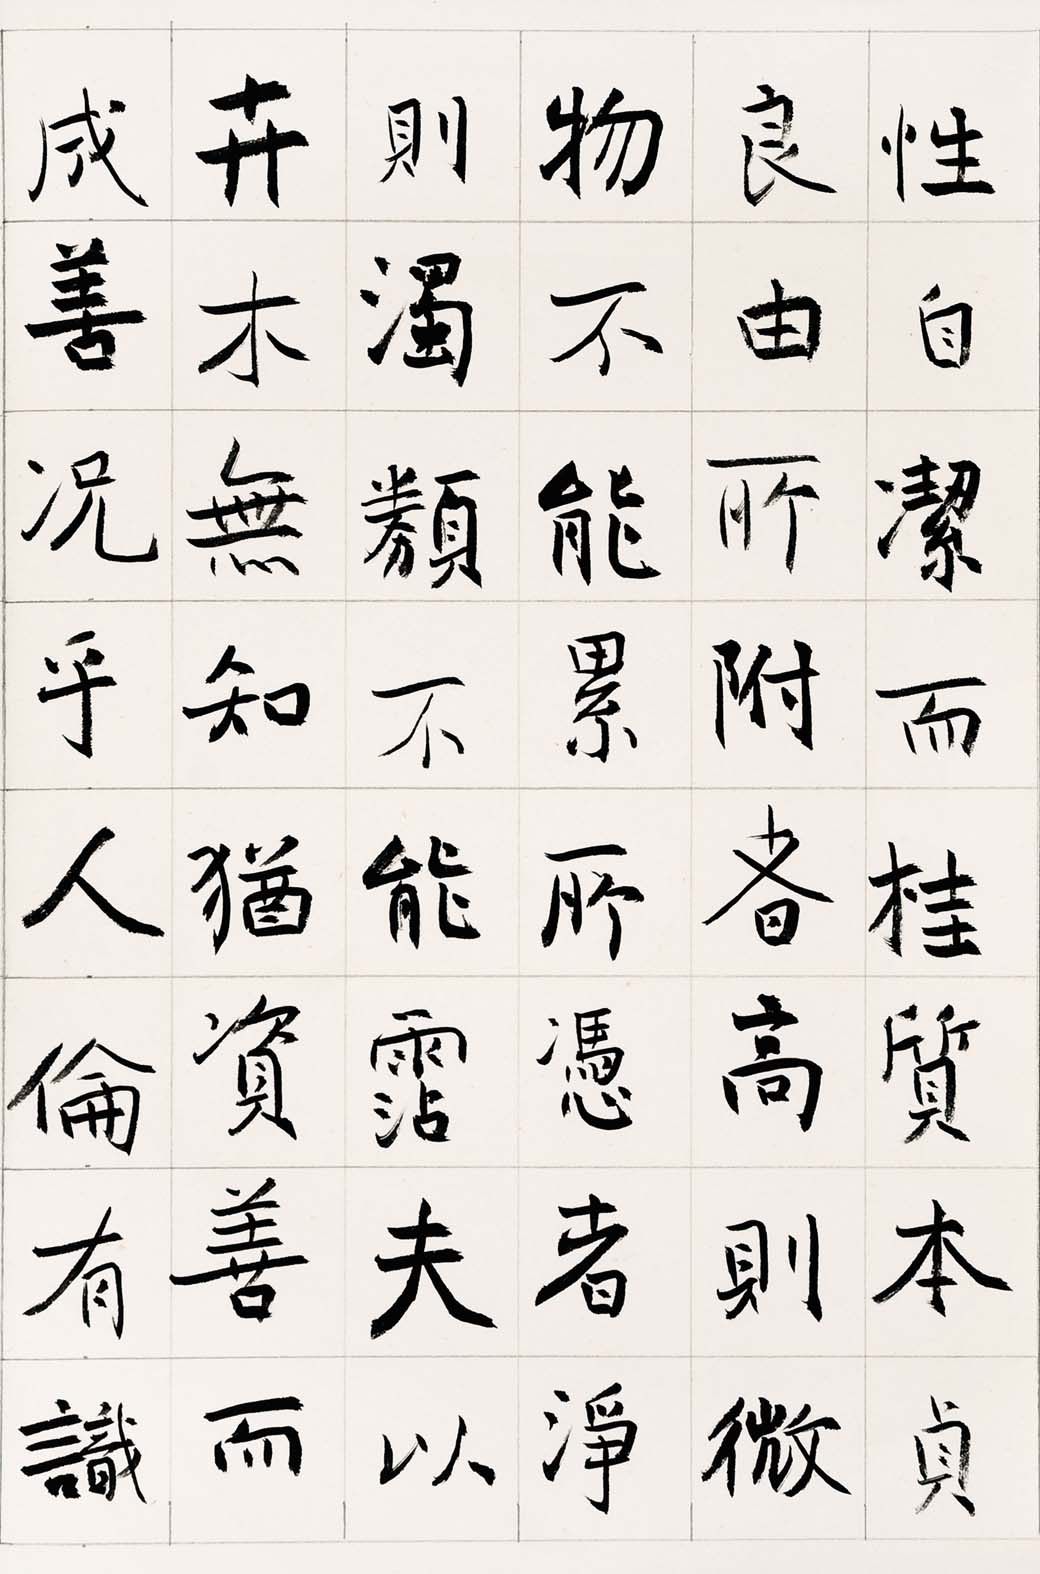 性自潔而桂質本貞
良由所附者高則微
物不能累所憑者淨
則濁類不能霑夫以
卉木無知猶資善而
成善况乎人倫有識